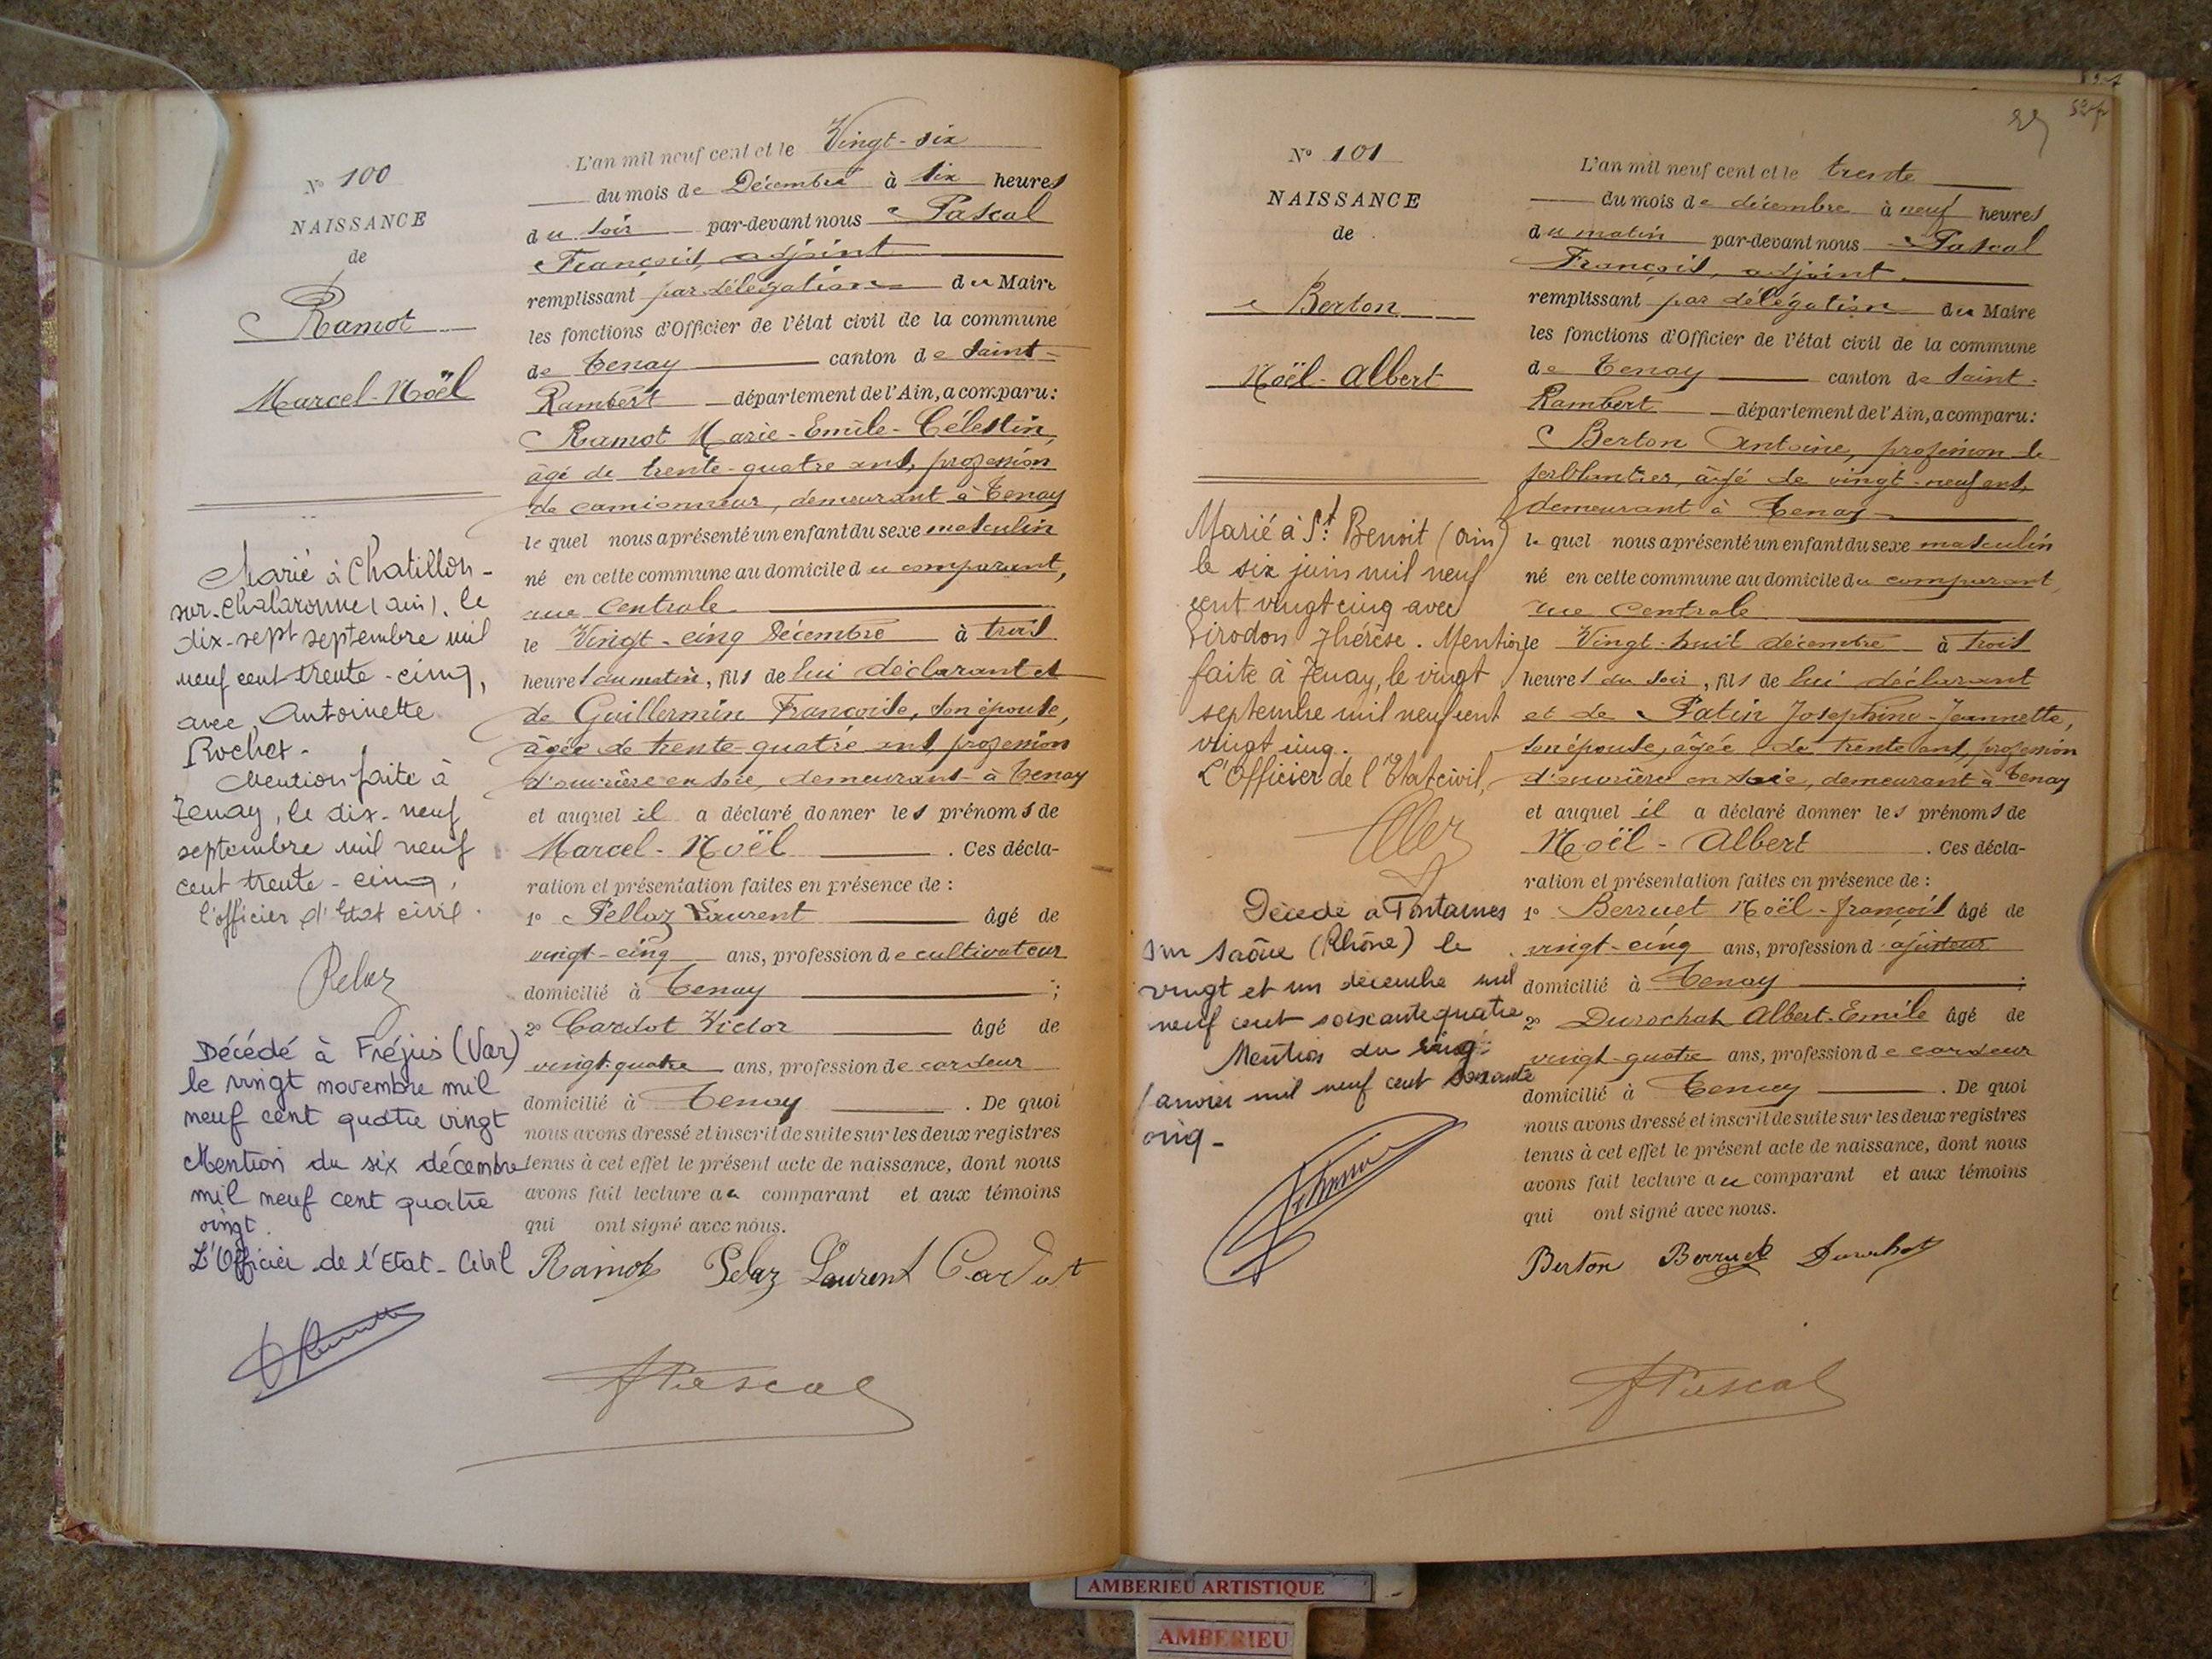 N° 100
NAISSANCE
de
Ramot
Marcel-Noël
Marié à Chatillon-
sur-Chalaronne (ain), le
dix-sept septembre mil
neuf cent trente-cinq,
avec Antoinette
Rochet.
Mention faite à
Tenay, le dix-neuf
septembre mil neuf
cent trente-cinq,
l'officier d'Etat civil.
Pelaz
Décédé à Fréjus (Var)
le vingt novembre mil
neuf cent quatre vingt
Mention du six décembre
mil neuf cent quatre
vingt.
L'Officier de l'Etat-Civil
L'an mil neuf cent et le Vingt-six
du mois de Décembre à six heures
du soir par-devant nous Pascal
François, adjoint
remplissant par délégation du Maire
les fonctions d'Officier de l'état civil de la commune
de Tenay canton de Saint-
Rambert département de l'Ain, a comparu:
Ramot Marie-Emile-Célestin,
âgé de trente-quatre ans, profession
de camionneur, demeurant à Tenay
lequel nous a présenté un enfant du sexe masculin
né en cette commune au domicile du comparant,
rue Centrale
le Vingt-cinq Décembre à trois
heures du matin, fils de lui déclarant et
de Guillermin Françoise, son épouse,
âgée de trente-quatre ans, profession
d'ouvrière en soie, demeurant à Tenay
et auquel il a déclaré donner les prénoms de
Marcel-Noël. Ces décla-
ration et présentation faites en présence de :
1° Pellaz Laurent âgé de
vingt-cinq ans, profession de cultivateur
domicilié à Tenay ;
2° Cardot Victor âgé de
vingt-quatre ans, profession de cardeur
domicilié à Tenay. De quoi
nous avons dressé et inscrit de suite sur les deux registres
tenus à cet effet le présent acte de naissance, dont nous
avons fait lecture au comparant et aux témoins
qui ont signé avec nous.
Ramot Pelaz Laurent Cardot
F Pascal
N° 101
NAISSANCE
de
Berton
Noël-Albert
Marié à St. Benoit (ain)
le six juin mil neuf
cent vingt cinq avec
Girodon Thérèse. Mention
faite à Tenay, le vingt
septembre mil neuf cent
vingt cinq.
L'Officier de l'Etat civil,
Décédé à Fontaines
sur Saône (Rhône) le
vingt et un décembre mil
neuf cent soixante quatre
Mention du cinq
janvier mil neuf cent soixante
cinq-
L'an mil neuf cent et le trente
du mois de décembre à neuf heures
du matin par-devant nous Pascal
François, adjoint.
remplissant par délégation du Maire
les fonctions d'Officier de l'état civil de la commune
de Tenay canton de Saint-
Rambert département de l'Ain, a comparu:
Berton Antoine, profession de
ferblantier, âgé de vingt-neuf ans,
demeurant à Tenay
lequel nous a présenté un enfant du sexe masculin
né en cette commune au domicile du comparant
rue Centrale
le Vingt-huit décembre à trois
heures du soir, fils de lui déclarant
et de Patin Josephine-Jeannette,
son épouse, âgée de trente ans, profession
d'ouvrière en soie, demeurant à Tenay
et auquel il a déclaré donner les prénoms de
Noël-Albert. Ces décla-
ration et présentation faites en présence de :
1° Berruet Noël-François âgé de
vingt-cinq ans, profession d'ajusteur
domicilié à Tenay ;
2° Durochat Albert-Emile âgé de
vingt-quatre ans, profession de cardeur
domicilié à Tenay. De quoi
nous avons dressé et inscrit de suite sur les deux registres
tenus à cet effet le présent acte de naissance, dont nous
avons fait lecture au comparant et aux témoins
qui ont signé avec nous.
Berton Berruet Durochat
F Pascal
AMBERIEU ARTISTIQUE
AMBERIEU